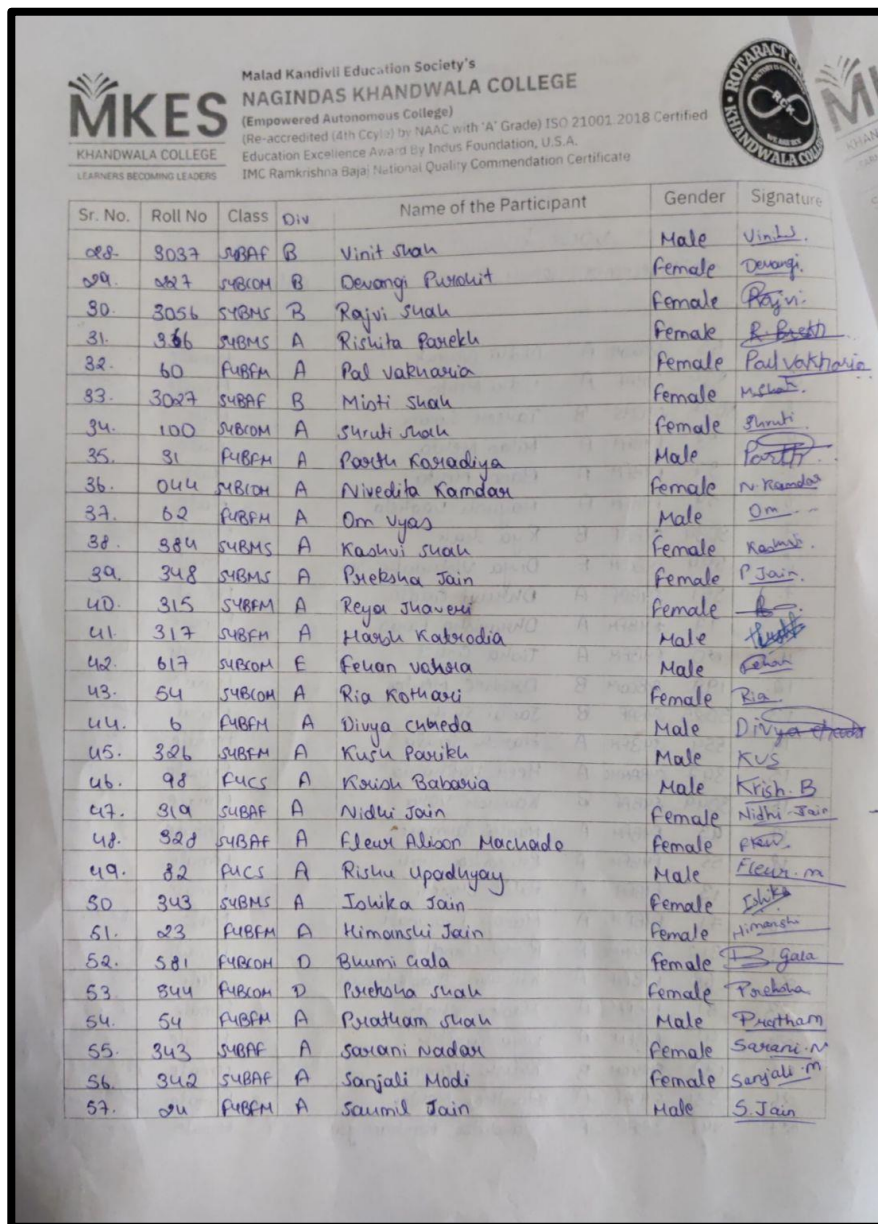 Malad Kandivli Education Society's
MKES NAGINDAS KHANDWALA COLLEGE
(Empowered Autonomous College)
(Re-accredited (4th Ccyle) by NAAC with 'A' Grade) ISO 21001 2018 Certified
KHANDWALA COLLEGE Education Excellence Award By Indus Foundation, U.S.A.
LEARNERS BECOMING LEADERS IMC Ramkrishna Bajaj National Quality Commendation Certificate
ROTARACT
KHANDWALA COLLEGE
Sr. No. Roll No Class Div Name of the Participant Gender Signature
028. 3037 SYBAF B Vinit Shah Male Vinit S.
029. 027 SYBCOM B Devangi Purohit Female Devangi.
30. 3056 SYBMS B Rajvi Shah Female Rajvi.
31. 366 SYBMS A Rishita Parekh Female
32. 60 FYBFM A Pal Vakharia Female Pal Vakharia
33. 3027 SYBAF B Misti Shah Female M.Shah.
34. 100 SYBCOM A Shruti Shah Female Shruti
35. 31 FYBFM A Parth Karadiya Male Parth
36. 044 SYBCOM A Nivedita Kamdar Female N. Kamdar
37. 62 FYBFM A Om Vyas Male Om
38. 384 SYBMS A Kashvi Shah Female Kashvi.
39. 348 SYBMS A Preksha Jain Female P Jain.
40. 315 SYBFM A Reya Jhaveri Female
41. 317 SYBFM A Harsh Katrodia Male
42. 617 SYBCOM E Fehan Vohra Male Fehan
43. 54 SYBCOM A Ria Kothari Female Ria
44. 6 FYBFM A Divya Chheda Male Divya
45. 326 SYBFM A Kush Parikh Male KUS
46. 98 FYCS A Krish Babaria Male Krish. B
47. 319 SYBAF A Nidhi Jain Female Nidhi Jain
48. 328 SYBAF A Fleur Alison Machado Female
49. 82 FYCS A Rishu Upadhyay Male Fleur. m
50 343 SYBMS A Ishika Jain Female Ishika
51. 23 FYBFM A Himanshi Jain Female Himanshi
52. 581 FYBCOM D Bhumi Gala Female B Gala
53. 544 FYBCOM D Preksha Shah Female Preksha
54. 54 FYBFM A Pratham Shah Male Pratham
55. 343 SYBAF A Sarani Nadar Female Sarani. N
56. 342 SYBAF A Sanjali Modi Female Sanjali. m
57. 24 FYBFM A Saumil Jain Male S. Jain